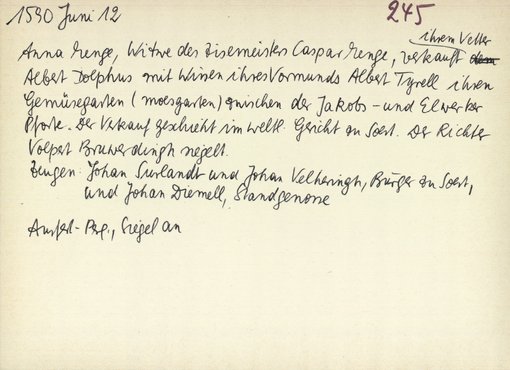 1590 Juni 12
245
ihrem Vetter
Anna Menge, Witwe des Zisemeisters Caspar Menge, verkauft dem
Albert Dolphus mit Wissen ihres Vormunds Albert Tyrell ihren
Gemüsegarten (moesgarten) zwischen der Jakobs- und Elwerker
Pforte. Der Verkauf geschieht im weltl. Gericht zu Soest. Der Richter
Volpert Bruwerdingh siegelt.
Zeugen: Johan Surlandt und Johan Veltheringh, Bürger zu Soest,
und Johan Diemell, Standgenosse
Ausfert.-Perg., Siegel an